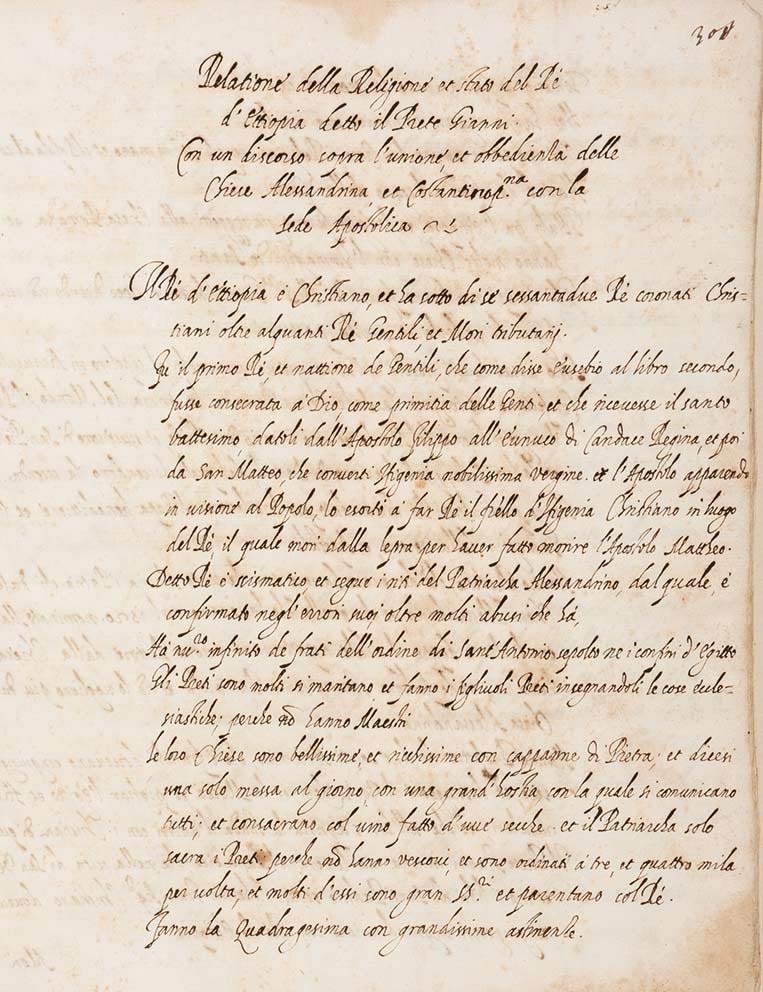 301
Relatione della Religione et stato del Ré
d'Ettiopia detto il Prete Gianni.
Con un discorso sopra l'unione, et obbedienza delle
Chiese Alessandrina, et Costantinop.na con la
sede Apostolica
Il Ré d'Ettiopia é Christiano, et ha sotto di sé sessantadue Ré coronati Chris=
tiani oltre alquanti Ré Gentili, et Mori tributarij.
Fu il primo Ré, et nattione de Gentili, che come disse Eusebio al libro secondo,
fusse consecrata à Dio, come primitia delle Genti, et che ricevesse il santo
battesimo, datoli dall'Apostolo Filippo all'Eunuco di Candace Regina, et poi
da San Matteo, che converti Ifigenia nobilissima vergine. et l'Apostolo apparendo
in visione al Popolo, lo esortò à far Ré il f'ello d'Ifigenia Christiano in luogo
del Ré, il quale morì dalla lepra per haver fatto morire l'Apostolo Mattheo.
Detto Ré é scismatico et segue i riti del Patriarcha Alessandrino, dal quale, é
confirmato negl'errori suoj oltre molti abusi che há,
Há nu.ro infinito de frati dell'ordine di Sant'Antonio sepolto ne i confini d'Egitto
Gli Preti sono molti si maritano et fanno i figlivoli Preti insegnandoli le cose eccle=
siastiche; perche nō hanno Maestri
le loro Chiese sono bellissime, et ricchissime con cappanne di Pietra; et dicesi
una solo messa al giorno con una grand'hostia con la quale si comunicano
tutti; et consacrano col vino fatto d'uve secche. et il Patriarcha solo
sacra i Preti perche nō hanno vescovi, et sono ordinati à tre, et quattro mila
per volta; et molti d'essi sono gran SS.ri et parentano col Ré.
Fanno la Quadragesima con grandissime astinenze.